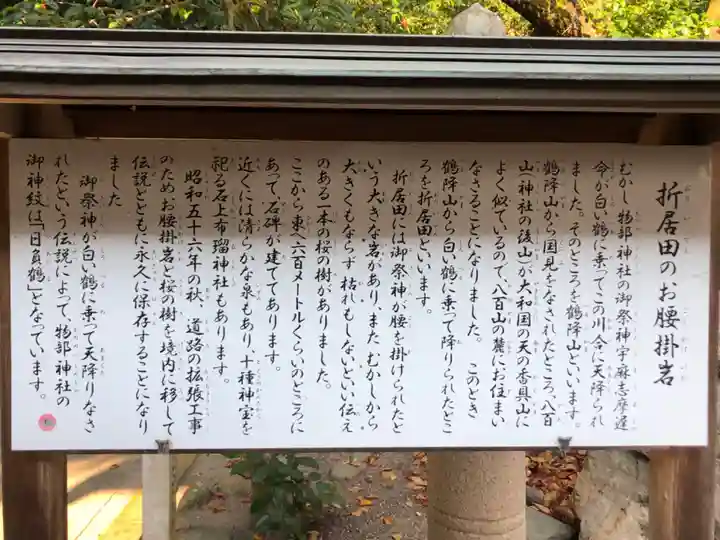 折居田のお腰掛岩
むかし物部神社の御祭神宇麻志摩遅
命が白い鶴に乗ってこの川合に天降られ
ました。そのところを鶴降山といいます。
鶴降山から国見をなされたところ、八百
山(神社の後山)が大和国の天の香具山に
よく似ているので、八百山の麓にお住まい
なさることになりました。このとき
鶴降山から白い鶴に乗って降りられたとこ
ろを折居田といいます。
折居田には御祭神が腰を掛けられたと
いう大きな岩があり、また、むかしから
大きくもならず、枯れもしないといい伝え
のある一本の桜の樹がありました。
ここから東へ六百メートルくらいのところに
あって、石碑が建ててあります。
近くには清らかな泉もあり、十種神宝を
祀る石上布瑠神社もあります。
昭和五十六年の秋、道路の拡張工事
のためお腰掛岩と桜の樹を境内に移して
伝説とともに永久に保存することになり
ました
御祭神が白い鶴に乗って天降りなさ
れたという伝説によって、物部神社の
御神紋は「日負鶴」となっています。